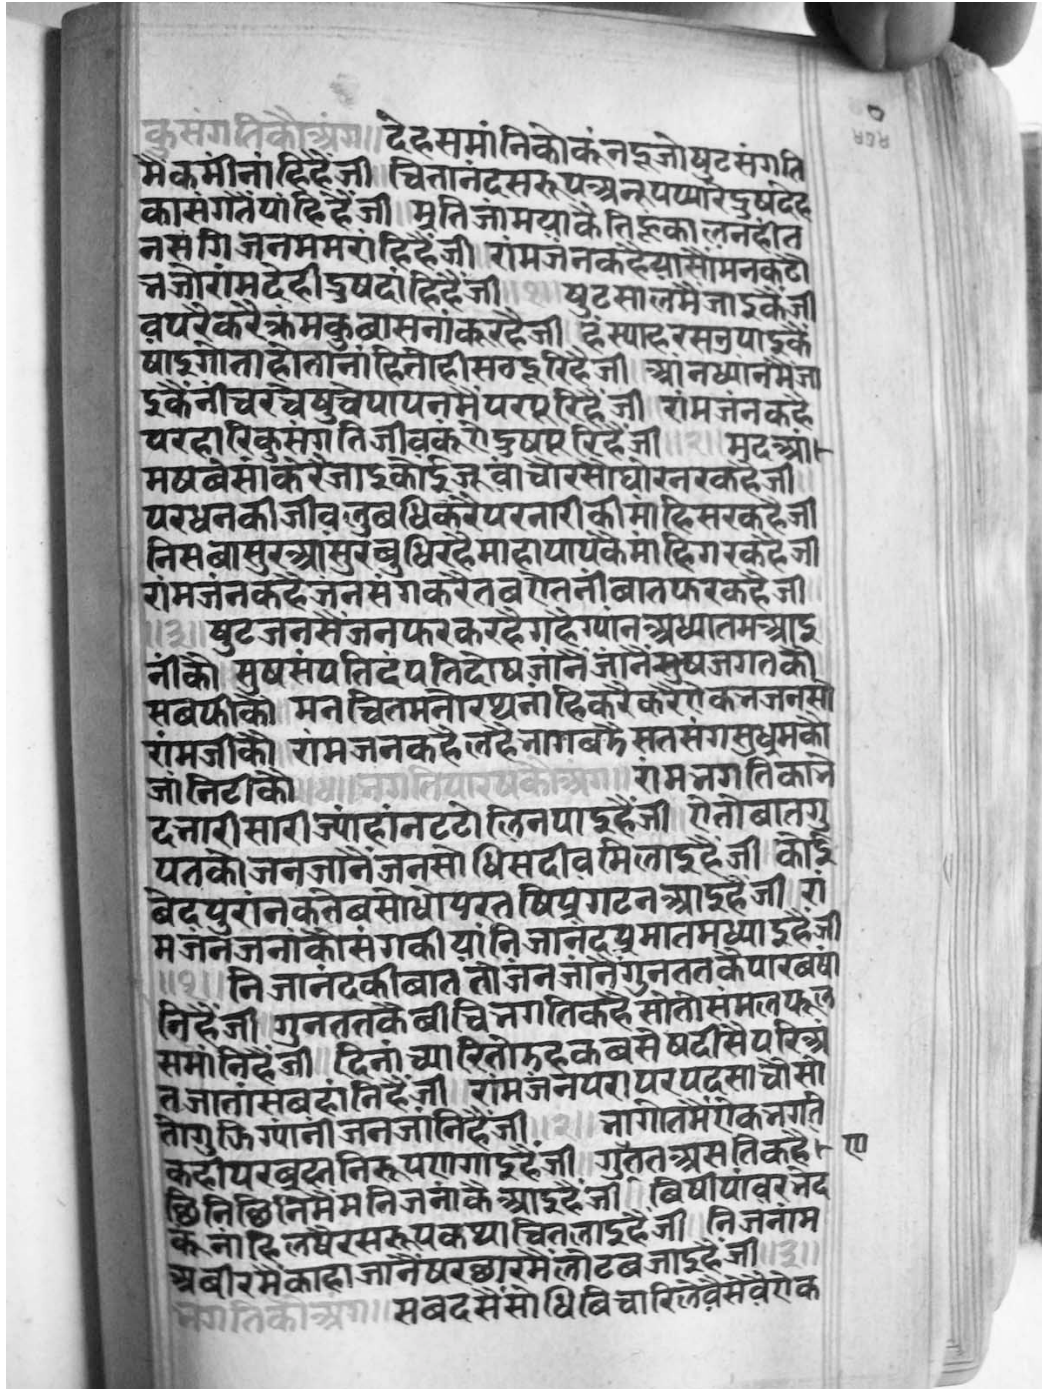 कुसंगतिकौअंग॥ देहसमांनिकोकंनदूजोषुटसंगति
मैकमीनांहिहैजी॥ चितानंदसरूपअनूपप्यारैदुषदेह
कासंगतैंपांहिहैंजी॥ मूतिजांमयाकैतिहूकालनहीत
नसंगिजनममरांहिहैंजी॥ रांमजंनकहैयासौंमनकटौ
भजौरांमदेहीदुषदांहिहैंजी॥१॥ षुटसालमैजाइकैजी
वपरैकरैक्रमकुबासनांकूरहैजी॥
षाइगोताहोतानांहितीहीसबदूरिहैजी॥ आंनध्यांनमैजा
इकैंनीचरचैषुचैपापनमैंपरपूरिहैंजी॥ रांमजंनकहै
परहारिकुसंगतिजीवकूंऐदुषपूरिहैंजी॥२॥ मुदआं
मषबेसांकरैजाइकोईजूवाचोरसोघोरनरकहैजी॥
परधनकीजीवलुबधिकरैपरनारीकीमांहिसरकहैजी॥
निसबासुरआंसुरबुधिरहैमाहापापकैमांहिगरकहैजी॥
रांमजंनकहैजंनसंगकरैतबऐतनीबातफरकहैजी॥
॥३॥ षुटजनसैंजनफरकरहैगहैग्यांनअध्यातमआइ
नींकौ॥ सुषसंपतिदंपतिदोषजांनैंजांनैंसुषजगतकौ
सबफीकौ॥ मनचितमनोरथनांहिकरैकरैऐकभजनसो
रांमजीकौ॥ रांमजनकहैलहैभागबडैसतसंगसुध्रमकौ
जांनिटीकौ॥४॥ भगतिपारषकौअंग॥ रांमभगतिकाभे
दभारीसारीज्यांहांनटटोलिनपाइहैंजी॥ ऐतीबातगु
पतकौजनजांनैंजनसोधिसदीवमिलाइहैंजी॥ कोई
बेदपुरांनकतेबसोधोपरतषिप्रगटनआइहैजी॥ रां
मजंनजनांकौसंगकीयांनिजानंदप्रमातमध्याइहैंजी
॥१॥ निजानंदकीबाततौजंनजांनैंगुनततकैपारबषां
निहैंजी॥ गुनततकैबीचिभगतिकहैसोतोसंमलफूल
समांनिहैंजी॥
तजातांसबहांनिहैंजी॥ रांमजंनपरापरपदसाचौसो
तोगुझिग्यांनीजनजांनिहैंजी॥२॥ भागोतमैंऐकभगति
कहीपरब्रह्मनिरूपणगाइहैंजी॥ गुंततअसतिकहै
ण
छिनिछिनिमैंमनिजनांकैआइहैंजी॥ बिषीपांवरभेद
कूंनांहिलषैरसरूपकथाचितलाइहैंजी॥ निजनांम
अबीरमैंकाहाजानैषरछारमैंलौटबजाइहैंजी॥३॥
भगतिकौअंग॥ सबदसैंसोधिबिचारिलेवैसेवैऐक